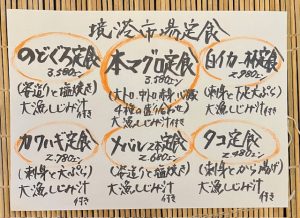 境港市場定食
のどぐろ定食
3,580エン
(姿造りと塩焼き)
大漁しじみ汁
付き
本マグロ定食
3,580エン
(大トロ、中トロ、赤身
4種の盛り合わせ)
大漁しじみ汁付き
白イカ一杯定食
2,980エン
(刺身と下足天ぷら)
大漁しじみ汁
付き
カワハギ定食
2,780エン
(刺身と天ぷら)
大漁しじみ汁
付き
メバル2本定食
2,680エン
(姿造りと塩焼き)
大漁しじみ汁
付き
タコ定食
2,480エン
(刺身とから揚げ)
大漁しじみ汁
付き